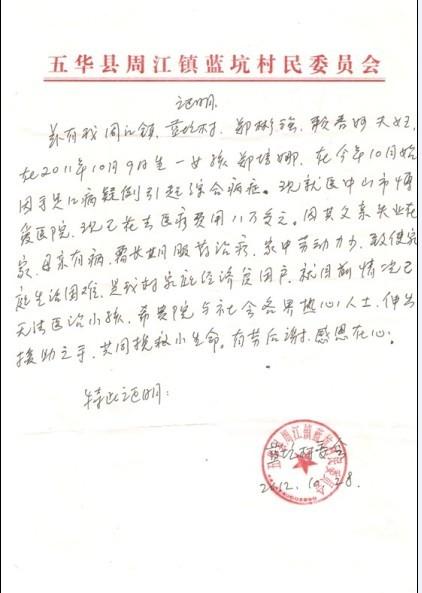 五华县周江镇蓝坑村民委员会
证明
兹有我周江镇，蓝坑村，郑彬强，赖春好夫妇，
在2011年10月9日生一女孩郑培娜，在今年10月始
因手足口病疑例引起综合病症。现就医中山市博
爱医院，现已花去医疗费用11万多元，因其父亲失业在
家，母亲有病，需长期服药治疗，家中劳动力少，致使家
庭生活困难，是我村家庭经济贫困户，就目前情况已
无法医治小孩，希贵院与社会各界热心人士，伸出
援助之手，共同挽救小生命。有劳后谢，感恩在心。
特此证明：
蓝坑村委会
2012.10.28.
五华县周江镇蓝坑村民委员会